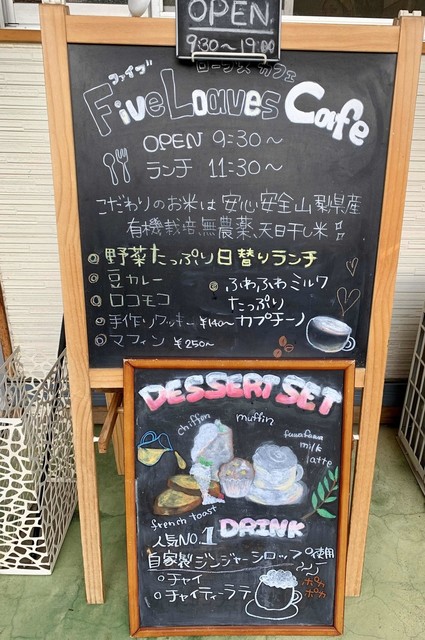 OPEN
9:30～19:00
ファイブ ローブス カフェ
Five Loaves Cafe
OPEN 9:30～
ランチ 11:30～
こだわりのお米は 安心安全山梨県産
有機栽培,無農薬、天日干し米
野菜たっぷり日替りランチ
豆カレー
ロコモコ
手作りクッキー ¥140～
マフィン ¥250～
ふわふわミルク
たっぷり
カプチーノ
DESSERT SET
chiffon
muffin
fuwafuwa
milk
latte
french toast
DRINK
人気NO.1
自家製ジンジャーシロップ使用
チャイ
チャイティーラテ
ポカ
ポカ